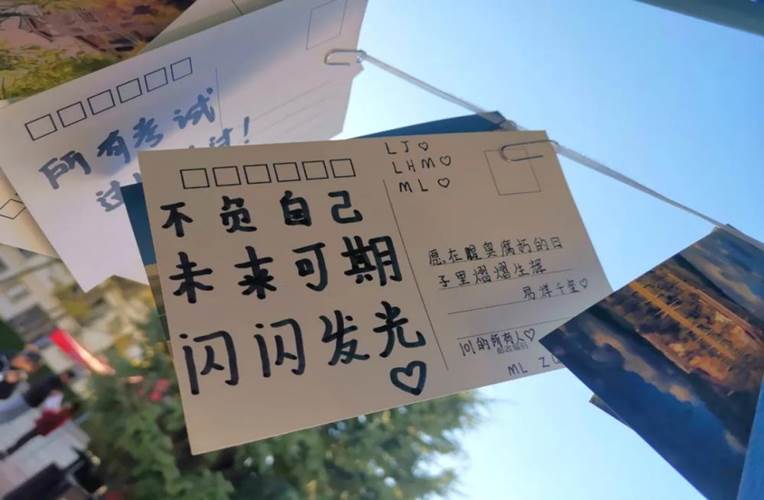 所有考试
不负自己
未来可期
闪闪发光
LJ♡
LHM♡
ML♡
愿在醒臭腐朽的日
子里熠熠生辉
易烊千玺♡
101的所有人♡
邮政编码
ML